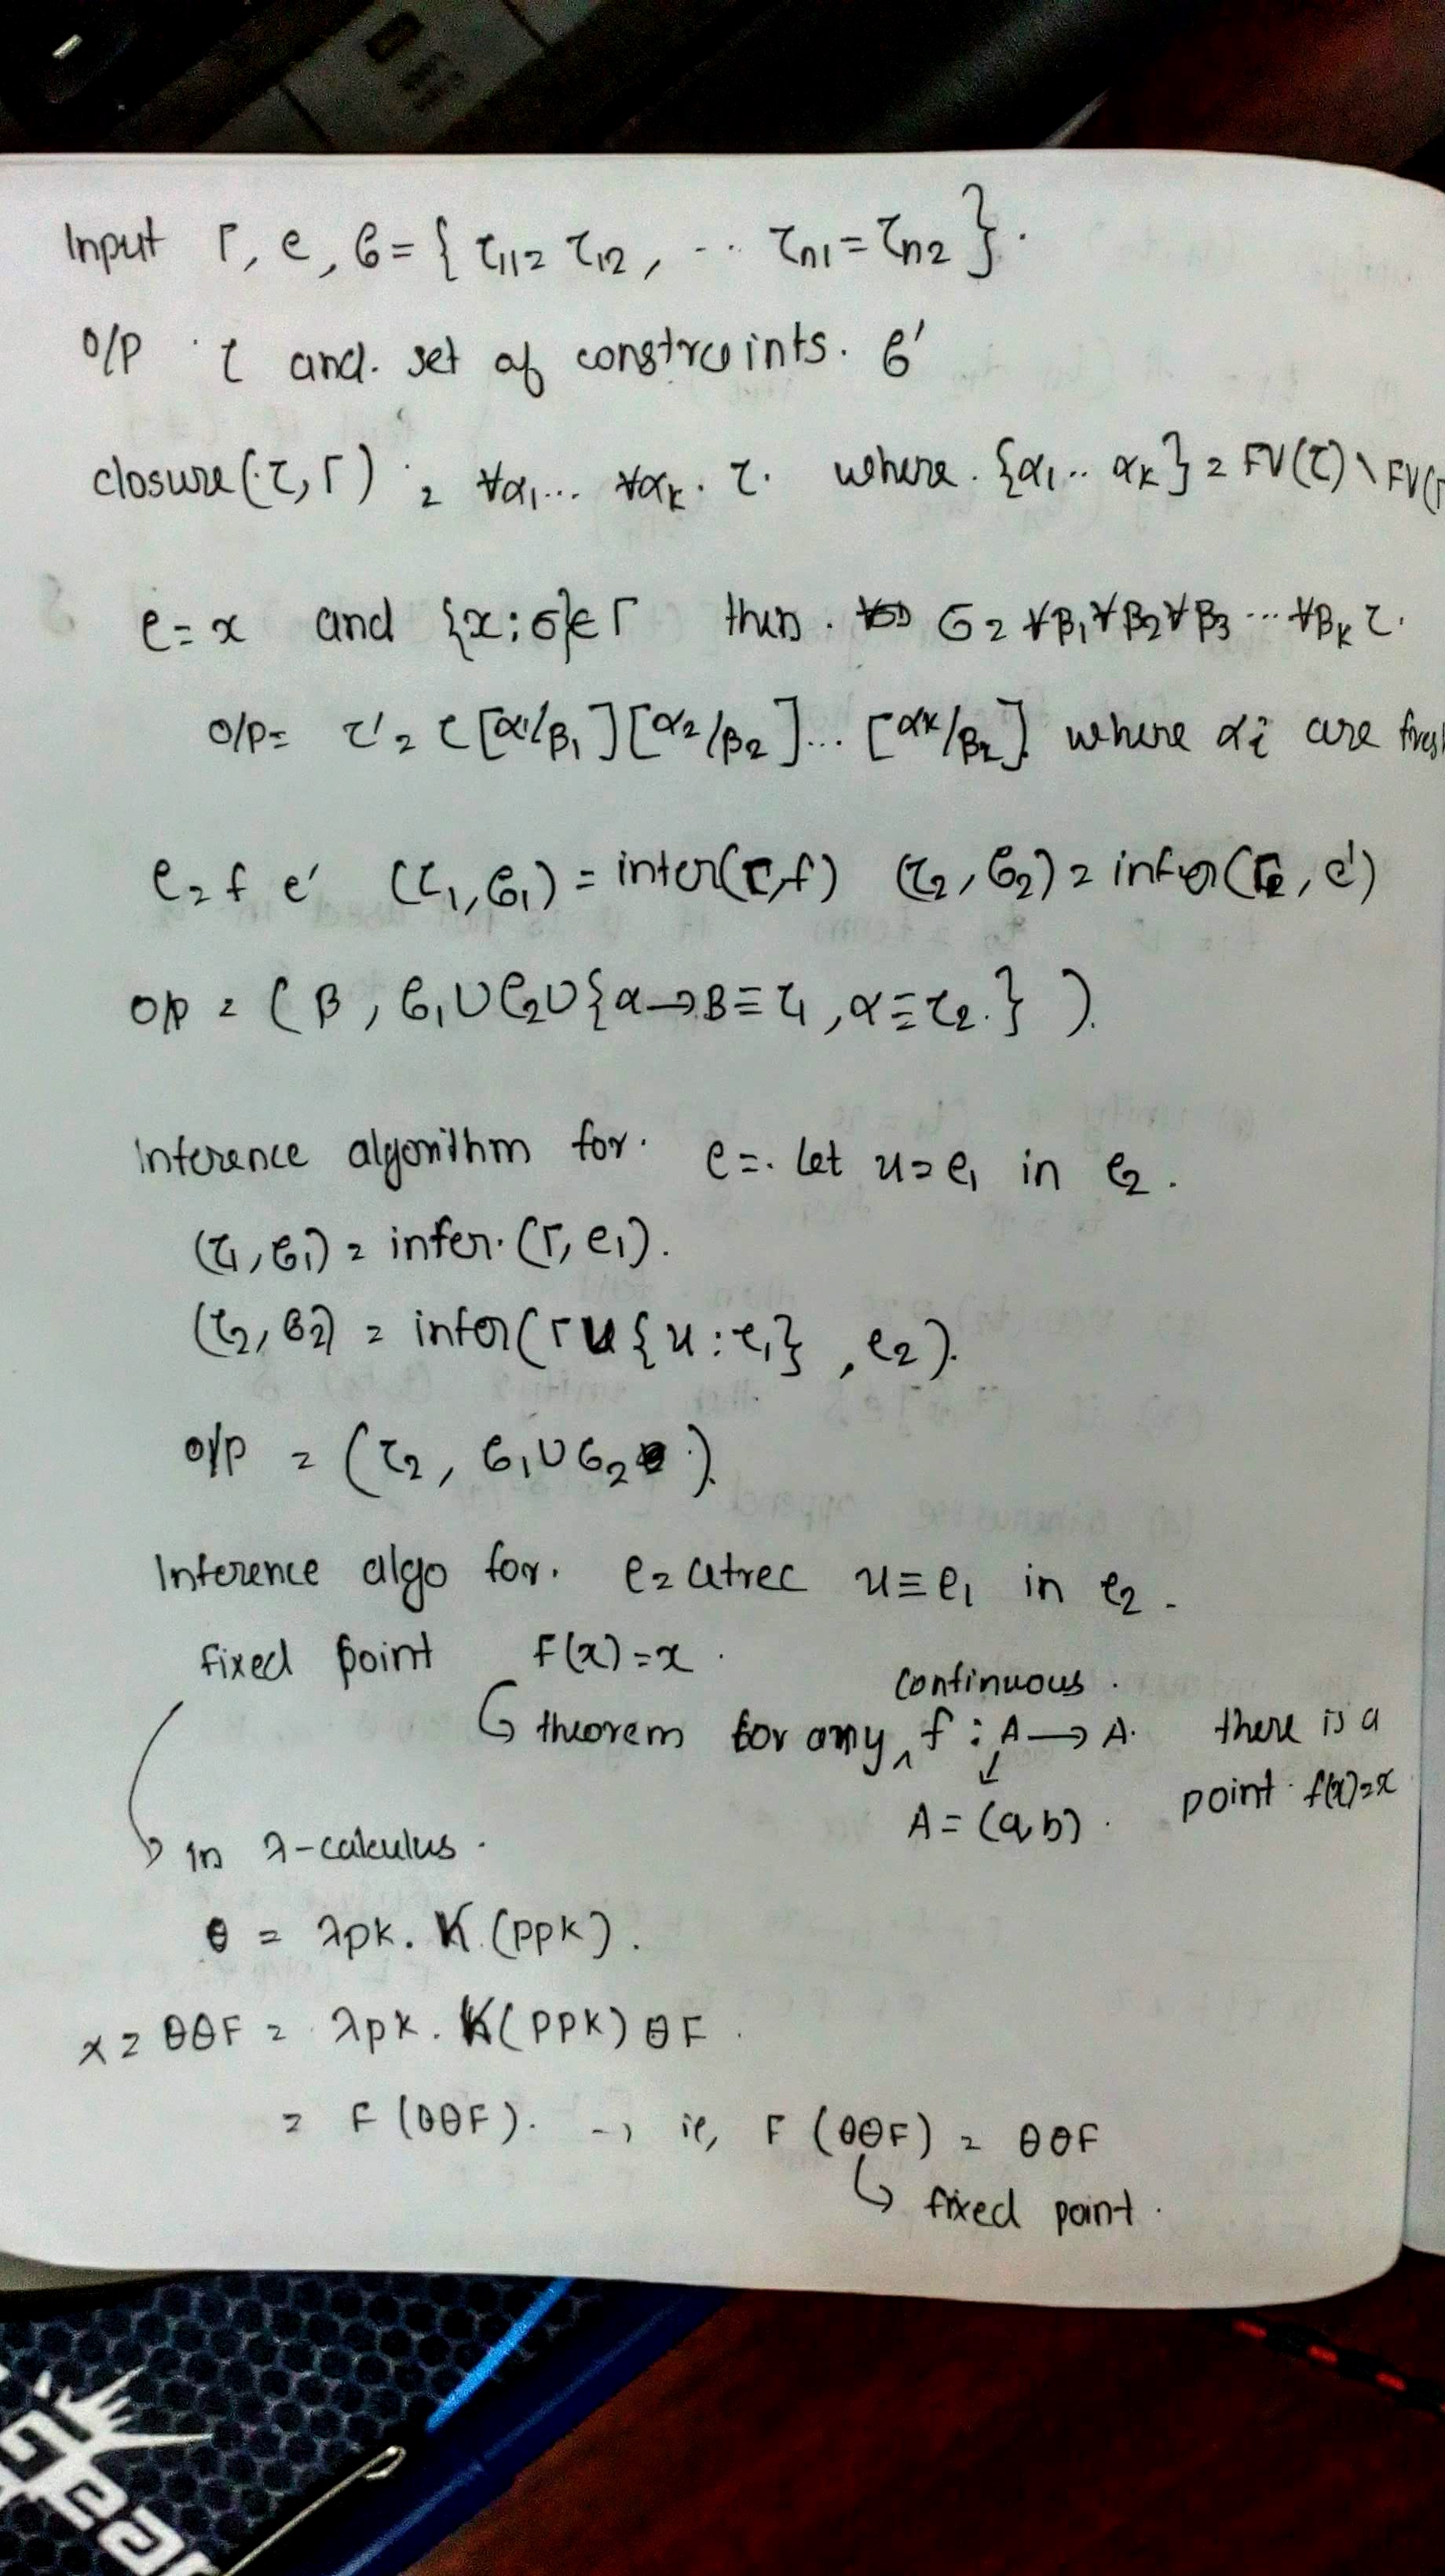 Input Γ, e, C = { τ11 = τ12, ... τn1 = τn2 }.
O/P τ and. set of constraints. C'
closure(τ, Γ) = ∀α1... ∀αk. τ. where. {α1.. αk} = FV(τ) \ FV(Γ
e = x and {x : σ} ∈ Γ then. σ = ∀β1 ∀β2 ∀β3 ... ∀βk τ.
O/P = τ' = τ [α1/β1] [α2/β2] ... [αk/βk] where αi are fresh
e = f e' (τ1, C1) = infer(Γ, f) (τ2, C2) = infer(Γ, e')
O/P = ( β, C1 ∪ C2 ∪ { α → β ≡ τ1, α ≡ τ2. } ).
Inference algorithm for. e =. let u = e1 in e2.
(τ1, C1) = infer. (Γ, e1).
(τ2, C2) = infer(Γ ∪ {u : τ1}, e2).
O/P = (τ2, C1 ∪ C2).
Inference algo for. e = letrec u ≡ e1 in e2.
fixed point F(x) = x.
continuous.
theorem for any ^ f : A → A. there is a
A = (a, b). point f(x) = x
in λ-calculus.
θ = λpk. K (ppk).
x = θθF = λpk. K (ppk) θ F.
= F (θθF). → ie, F (θθF) = θθF
fixed point.
Gear